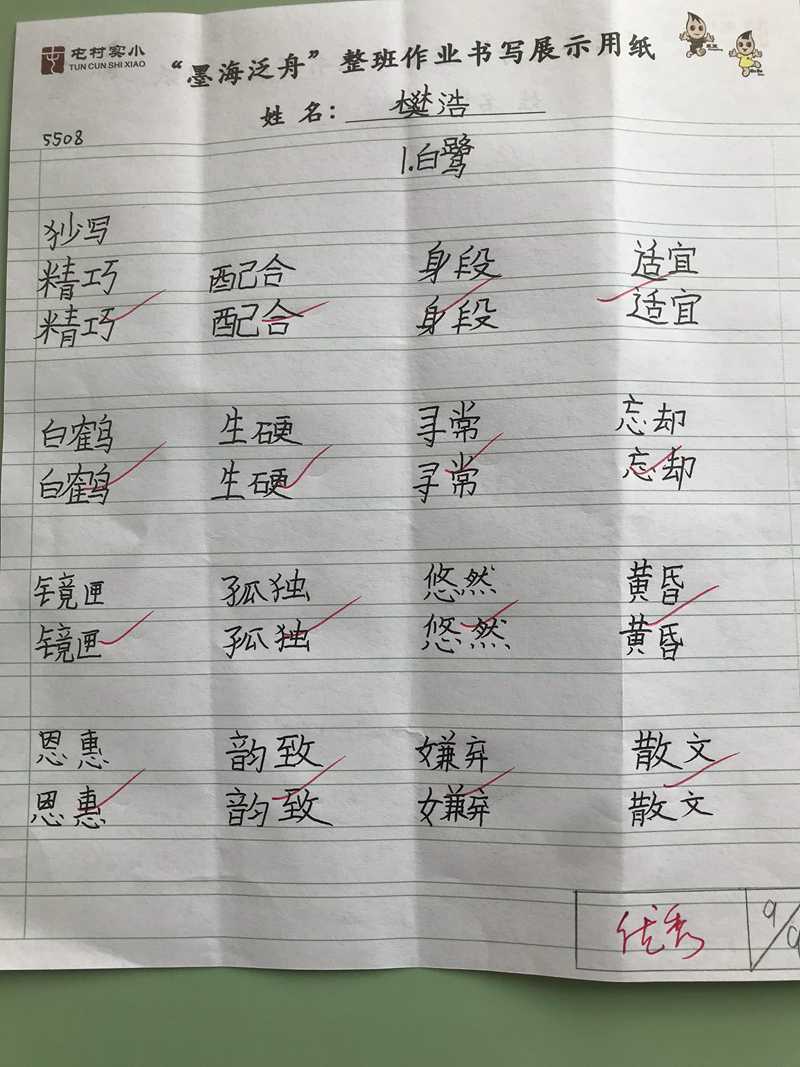 屯村实小
TUN CUN SHI XIAO
“墨海泛舟”整班作业书写展示用纸
姓名：樊浩
5508
1.白鹭
抄写
精巧 配合 身段 适宜
精巧 配合 身段 适宜
白鹤 生硬 寻常 忘却
白鹤 生硬 寻常 忘却
镜匣 孤独 悠然 黄昏
镜匣 孤独 悠然 黄昏
恩惠 韵致 嫌弃 散文
恩惠 韵致 嫌弃 散文
优秀